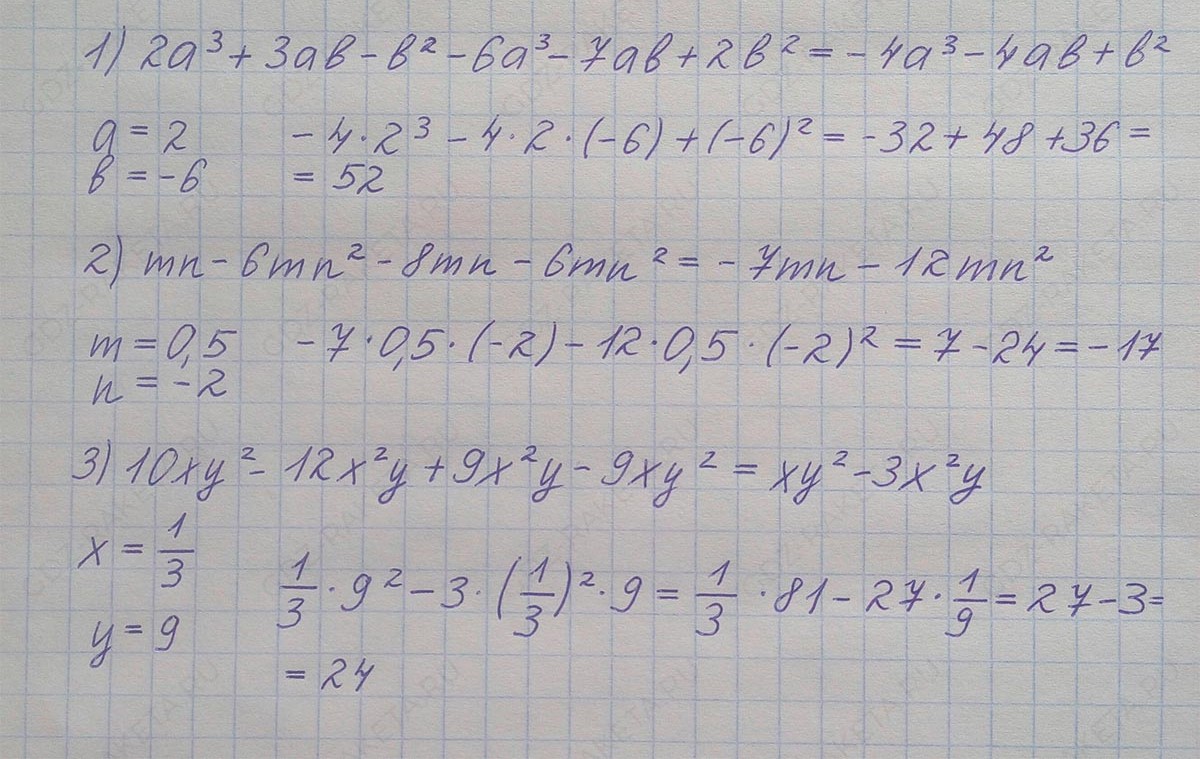 1) 2a³ + 3ab - b² - 6a³ - 7ab + 2b² = -4a³ - 4ab + b²
a = 2 - 4 · 2³ - 4 · 2 · (-6) + (-6)² = -32 + 48 + 36 =
b = -6 = 52
2) mn - 6mn² - 8mn - 6mn² = -7mn - 12mn²
m = 0,5 - 7 · 0,5 · (-2) - 12 · 0,5 · (-2)² = 7 - 24 = -17
n = -2
3) 10xy² - 12x²y + 9x²y - 9xy² = xy² - 3x²y
x = 1/3
1/3 · 9² - 3 · (1/3)² · 9 = 1/3 · 81 - 27 · 1/9 = 27 - 3 =
y = 9
= 24